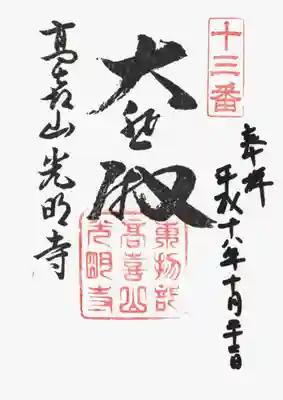 十三番
奉拝
平成十八年十月
大悲殿
東物部
高喜山
光明寺
髙喜山光明寺